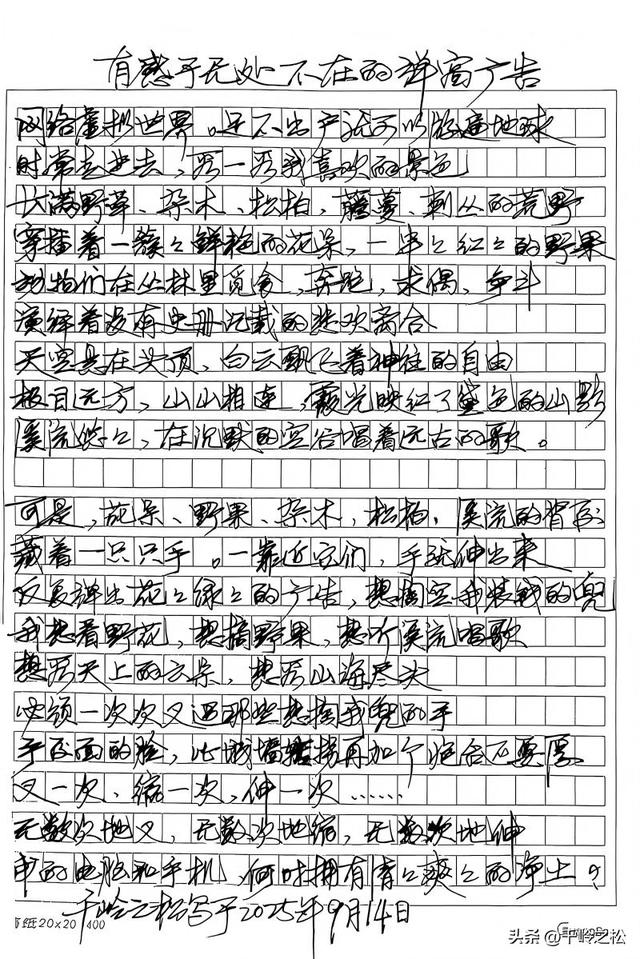 有感于无处不在的弹窗广告
网络虚拟世界。足不出户就可以游遍地球
时常走进去，看一看我喜欢的景色
长满野草、杂木、松柏，藤蔓、刺丛的荒野
穿插着一簇々鲜艳的花朵，一串々红々的野果
动物们在丛林里觅食，奔跑，求偶，争斗
演绎着没有史册记载的悲欢离合
天空悬在头顶，白云飘飞着神往的自由
极目远方，山山相连，霞光映红了黛色的山
溪流悠々，在沉默的空谷唱着远古的歌。
可是，花朵、野果、杂木，松柏，溪流的背后
藏着一只只手。一靠近它们，手就伸出来
反复弹出花々绿々的广告，想掏空我装钱的兜
我想看野花，想摘野果，想听溪流唱歌
想看天上的云朵，想看山海尽头
必须一次次叉过那些想掏我兜的手
手后面的脸，比城墙拐再加个炮台还要厚
叉一次，缩一次，伸一次……
无数次地叉，无数次地缩，无数次地伸
的电脑和手机，何时拥有清々爽々的净土。
千岭之松写于2025年9月14日
20×20 400
头条 @千岭之松